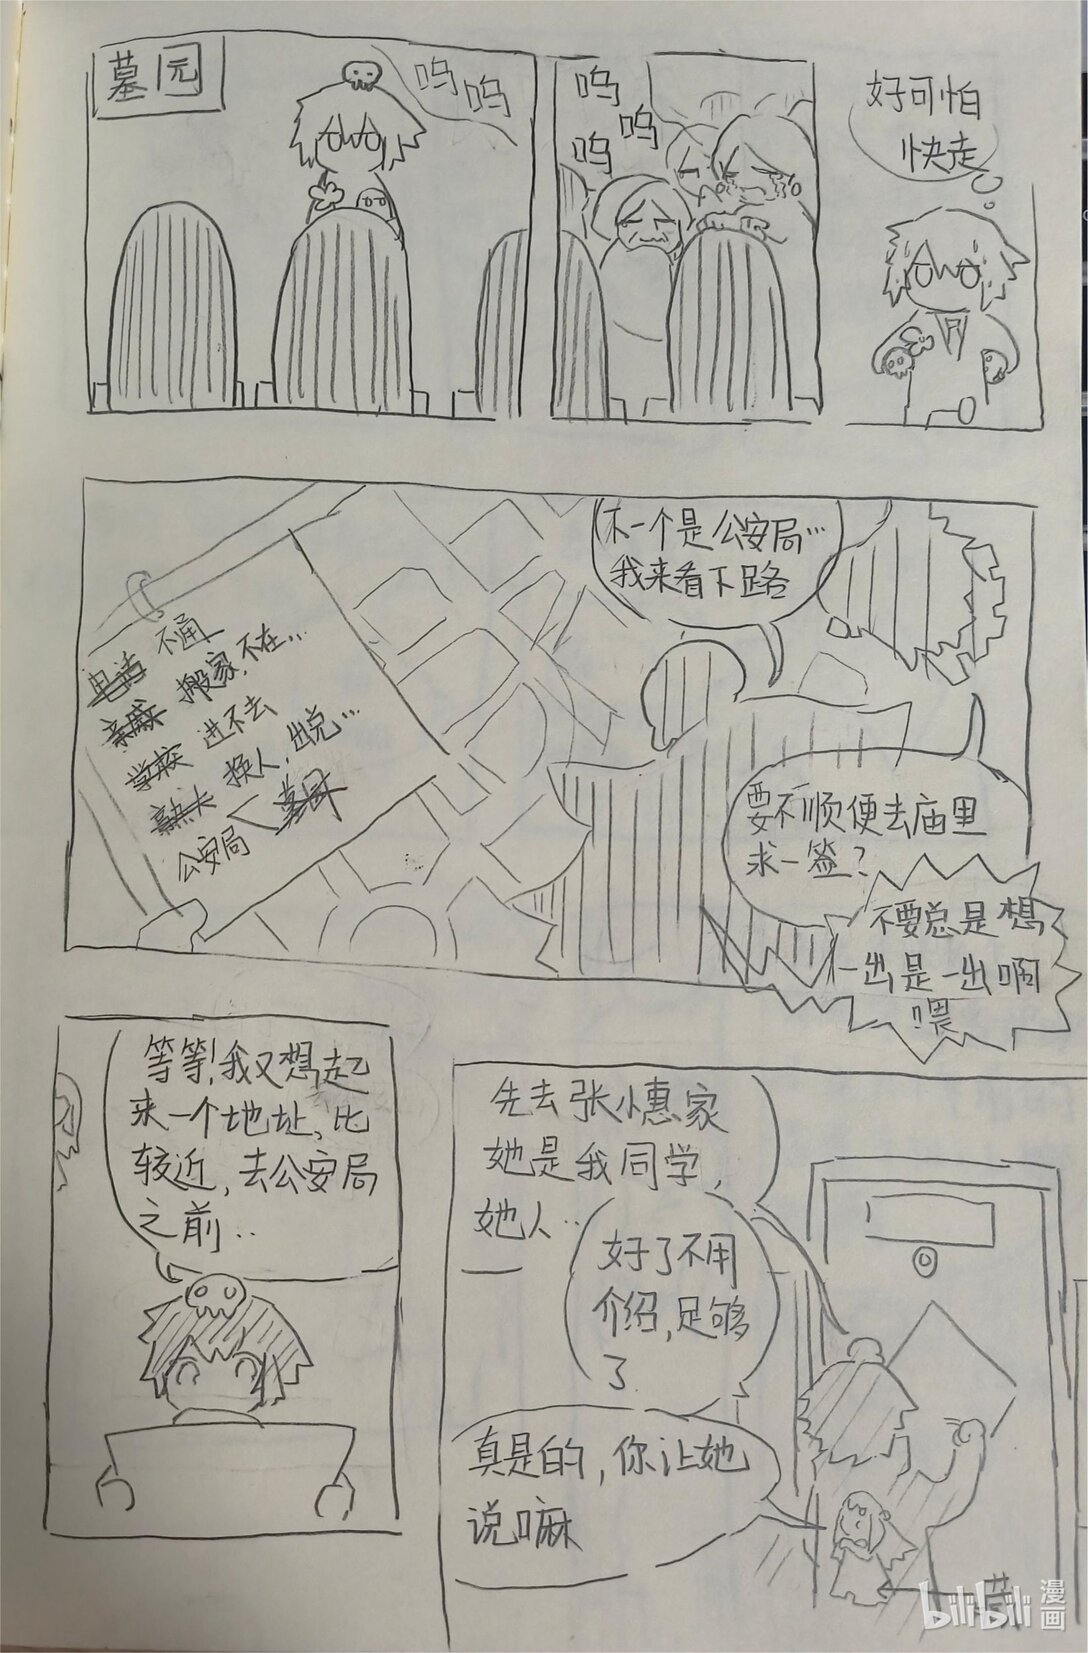 墓园
呜
呜
呜
呜
呜
好可怕
快走
下一个是公安局…
我来看下路
电话 不通
亲戚 搬家,不在…
学校 进不去
换人,出说…
公安局<墓园
要不顺便去庙里
求一签?
不要总是想
一出是一出啊
喂
等等!我又想起
来一个地址,比
较近,去公安局
之前..
先去张小惠家
她是我同学,
她人..
好了不用
介绍,足够
了
真是的,你让她
说嘛
bilibili
漫画